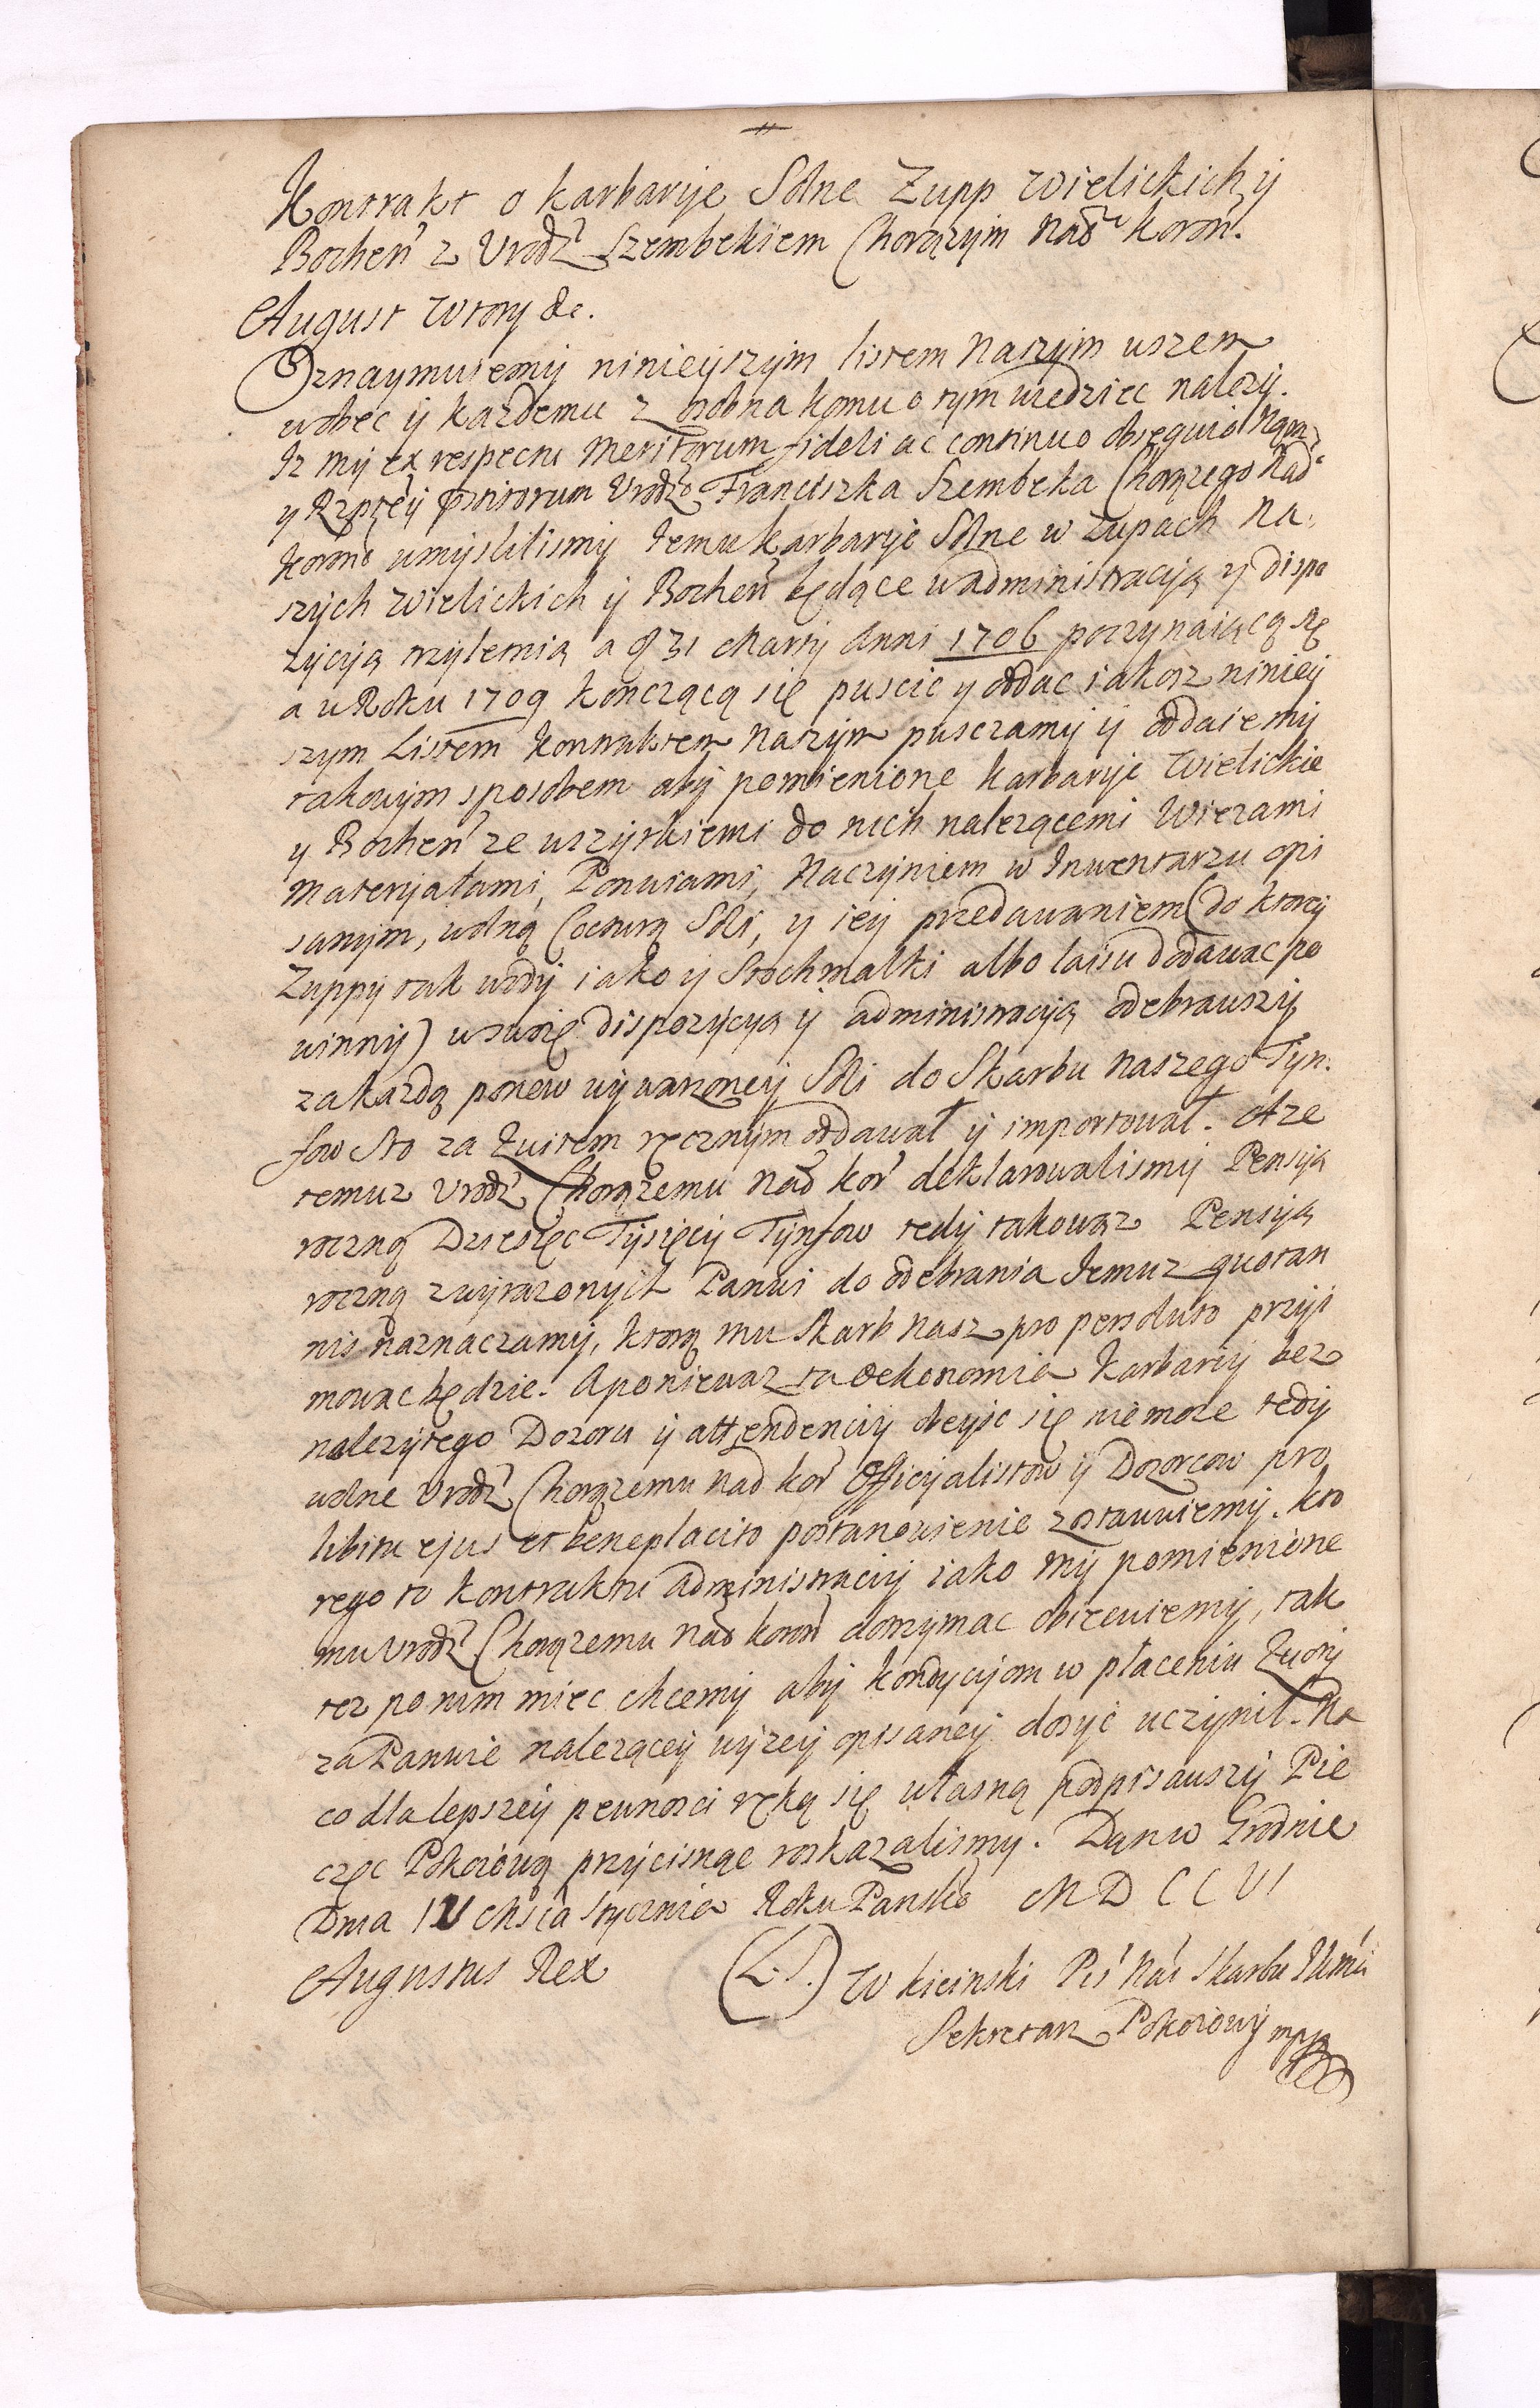 Kontrakt o karbarije Solne Zupp Wielickich ÿ
Bocheń z Urodź Szembekiem Chorążÿm Nadⁿ koroń.
August Wtorÿ &c.
Oznaymuiemÿ ninieÿszÿm listem Naszÿm wszem
wobec ÿ każdemu z osobna komu o tÿm wiedziec nalezÿ.
Iz mÿ ex respectu Meritorum fideli ac continuo obsequio Nam
y Rzptēÿ Urodzo Franciszka Szembeka Chorązego Nadº
koronº umÿslilismÿ Iemu karbarÿe Solne w zupach Na,
szÿch Wielickich ÿ Bocheń będące w administraciją y dispo
zycÿą trzÿletnią a d 31 Martij Anni 1706 poczynaiącą się
a w Roku 1709 konczącą się puscic y oddac iakosz niniey
szym Listem kontraktem Naszÿm pusczamÿ ÿ oddaiemÿ
takowÿm sposobem abÿ pomienione karbarÿe Wielickie
y Bocheń ze wszÿtkiemi do nich nalezącemi Wiezami
Materÿałami, Panwiami, Naczÿniem w Inwentarzu opi
sanÿm, wolną Cocturą Soli, y ieÿ przedawaniem (do ktorÿ
Zuppÿ tak wodÿ iako ÿ Stochmalki albo laisu dodawac po
winnÿ) w swoię dispozÿcyą ÿ administracÿą odebrawszÿ
za kazdą panew wÿwarzoneÿ Soli do Skarbu Naszego Tÿn:
fow Sto za kwitem ręcznÿm oddawał ÿ importował. A ze
temuz Urodź Chorązemu Nad koŕ deklarowalismÿ Pensÿą
roczną Dziesięc Tÿsięcÿ Tÿnfow tedÿ takowąz Pensÿą
roczną z wÿrazonÿch Panwi do odebrania Iemuz quotan
nis naznaczamÿ, ktorą mu Skarb Nasz pro persoluto przÿi
mowac będzie. A poniewaz ta oekonomia karbariÿ bez
nalezÿtego Dozoru ÿ attendenciÿ obeÿsc się nie moze tedÿ
wolne Urodź Chorązemu Nad koŕ Officÿalistow ÿ Dozorcow pro
libitu ejus et beneplacito postanowienie zostawuiemÿ. kto
rego to kontraktu administraciÿ iako mÿ pomienione
mu Urodź Chorązemu Nad koroń dotrzymac obiecuiemÿ, tak
tez po nim miec chcemÿ abÿ kondycÿom w płaceniu kwotÿ
za Panwie naleząceÿ wÿzeÿ opisaneÿ dosÿc uczÿnił. Na
co dla lepszeÿ pewnosci ręką się własną podpisawszÿ Pie
częc Pokoiową przÿcisnąc roskazalismy. Dan w Grodnie
Dnia Mscia Stycznia Roku Pansko M D C C VI
Augustus Rex (L.S.) W kicinski Pis Nar Skarbu
Sekretarz Pokoiowÿ mpp